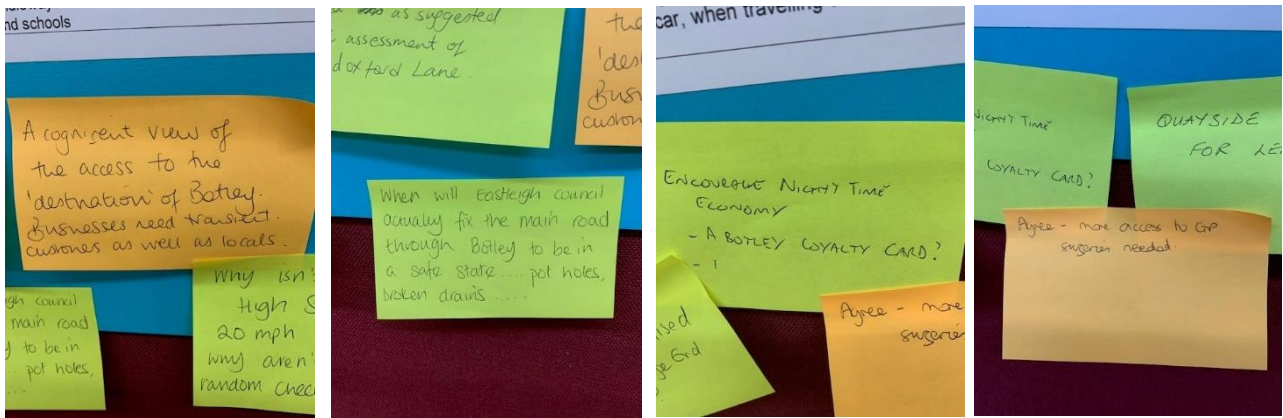 nd schools
A cognicent view of
the access to the
'destination' of Botley.
Businesses need transient
customers as well as locals.
gh council
main road
y to be in
pot holes,
....
Why isn'
High S
20 mph
why aren'
random chec
as suggested
assessment of
doxford Lane.
the
'des
Busi
custom
When will Eastleigh council
actually fix the main road
through Botley to be in
a safe state .... pot holes,
broken drains .....
car, when travelling
ENCOURAGE NIGHT TIME
ECONOMY
- A BOTLEY LOYALTY CARD?
- 1
ised
ge End
Agree - more
surgeries
NIGHT TIME
LOYALTY CARD?
QUAYSIDE
FOR LE
Agree - more access to GP
surgeries needed.